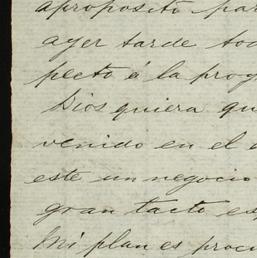 apropósito par
ayer tarde tod
pecto á la prog
Dios quiera qu
venido en el
este un negocio
gran tacto es
Mi plan es proc